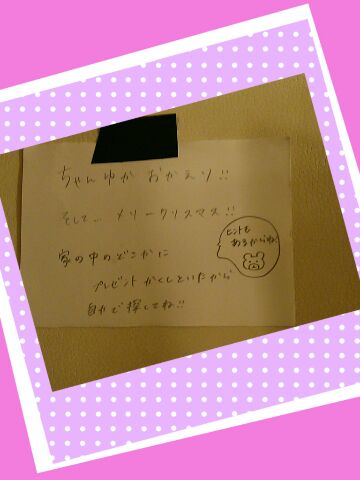 ちゃんゆか おかえり!!
そして... メリークリスマス!!
家の中のどこかに
プレゼントかくしといたから
自力で探してね!!
ヒントも
あるからね